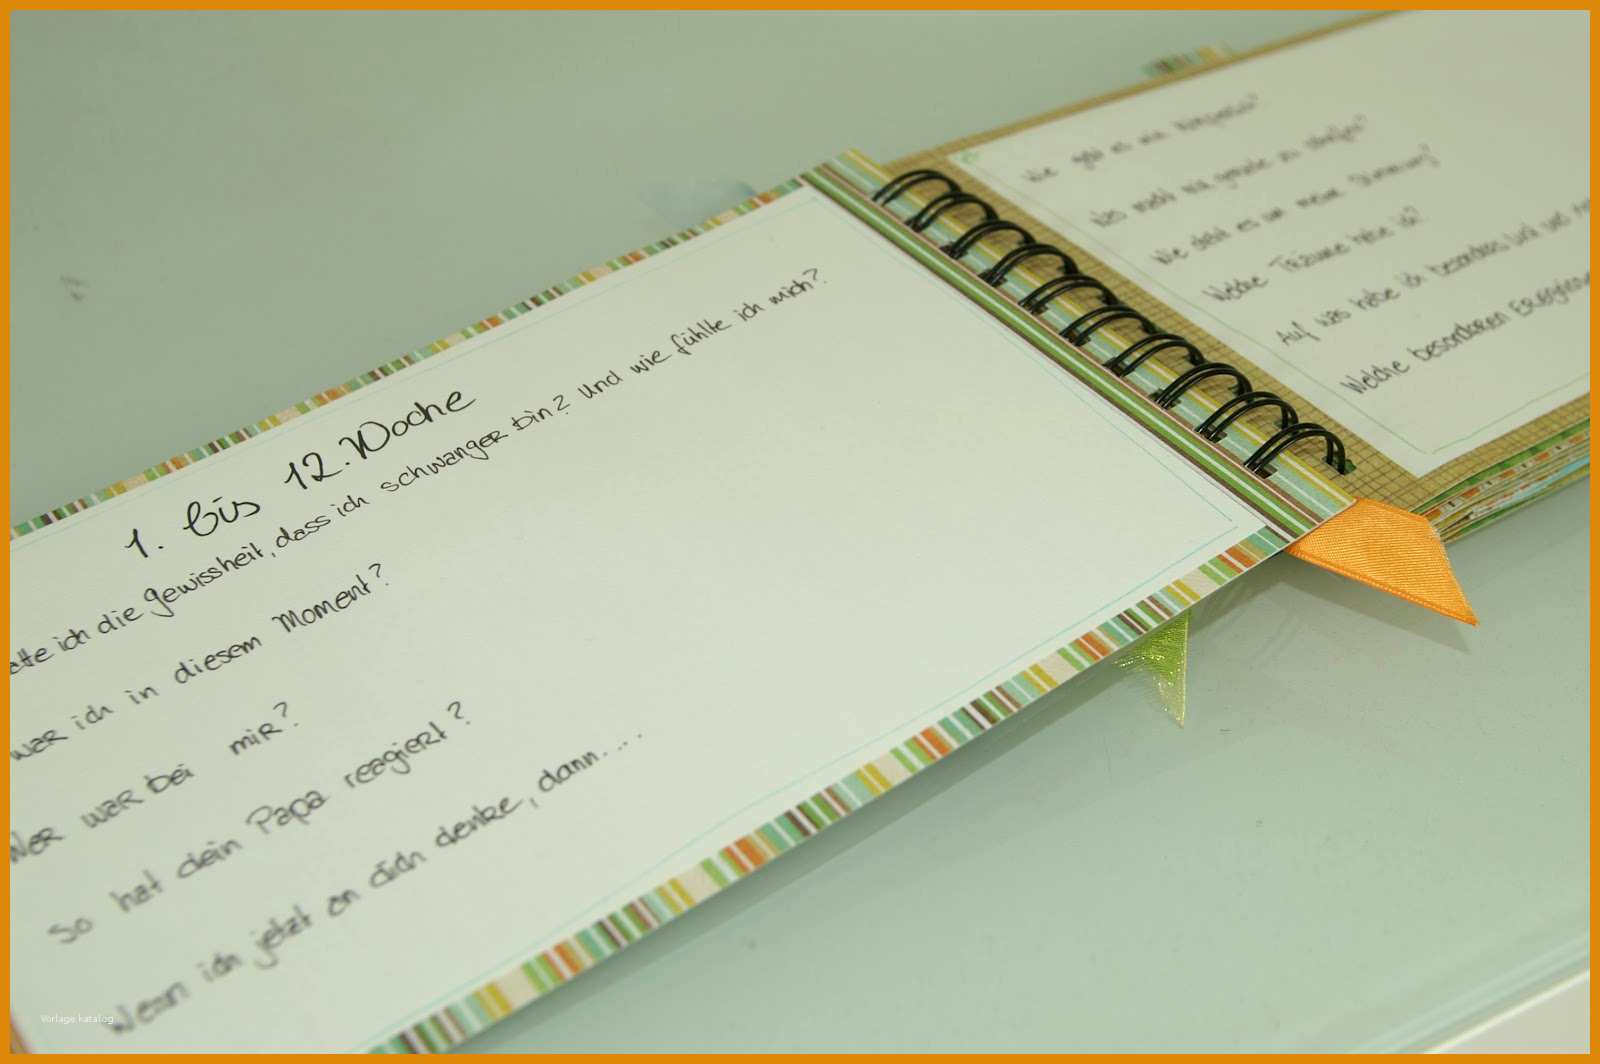 1. bis 12. Woche
atte ich die gewissheit, dass ich schwanger bin? Und wie fühlte ich mich?
war ich in diesem Moment?
Wer war bei mir?
So hat dein Papa reagiert?
Wenn ich jetzt an dich denke, dann....
Wie geht es mir körperlich?
Was macht mir gerade zu schaffen?
Wie steht es um meine Stimmung?
Welche Träume habe ich?
Auf was habe ich besonders Lust und
Welche besonderen Ereignisse
Vorlage katalog